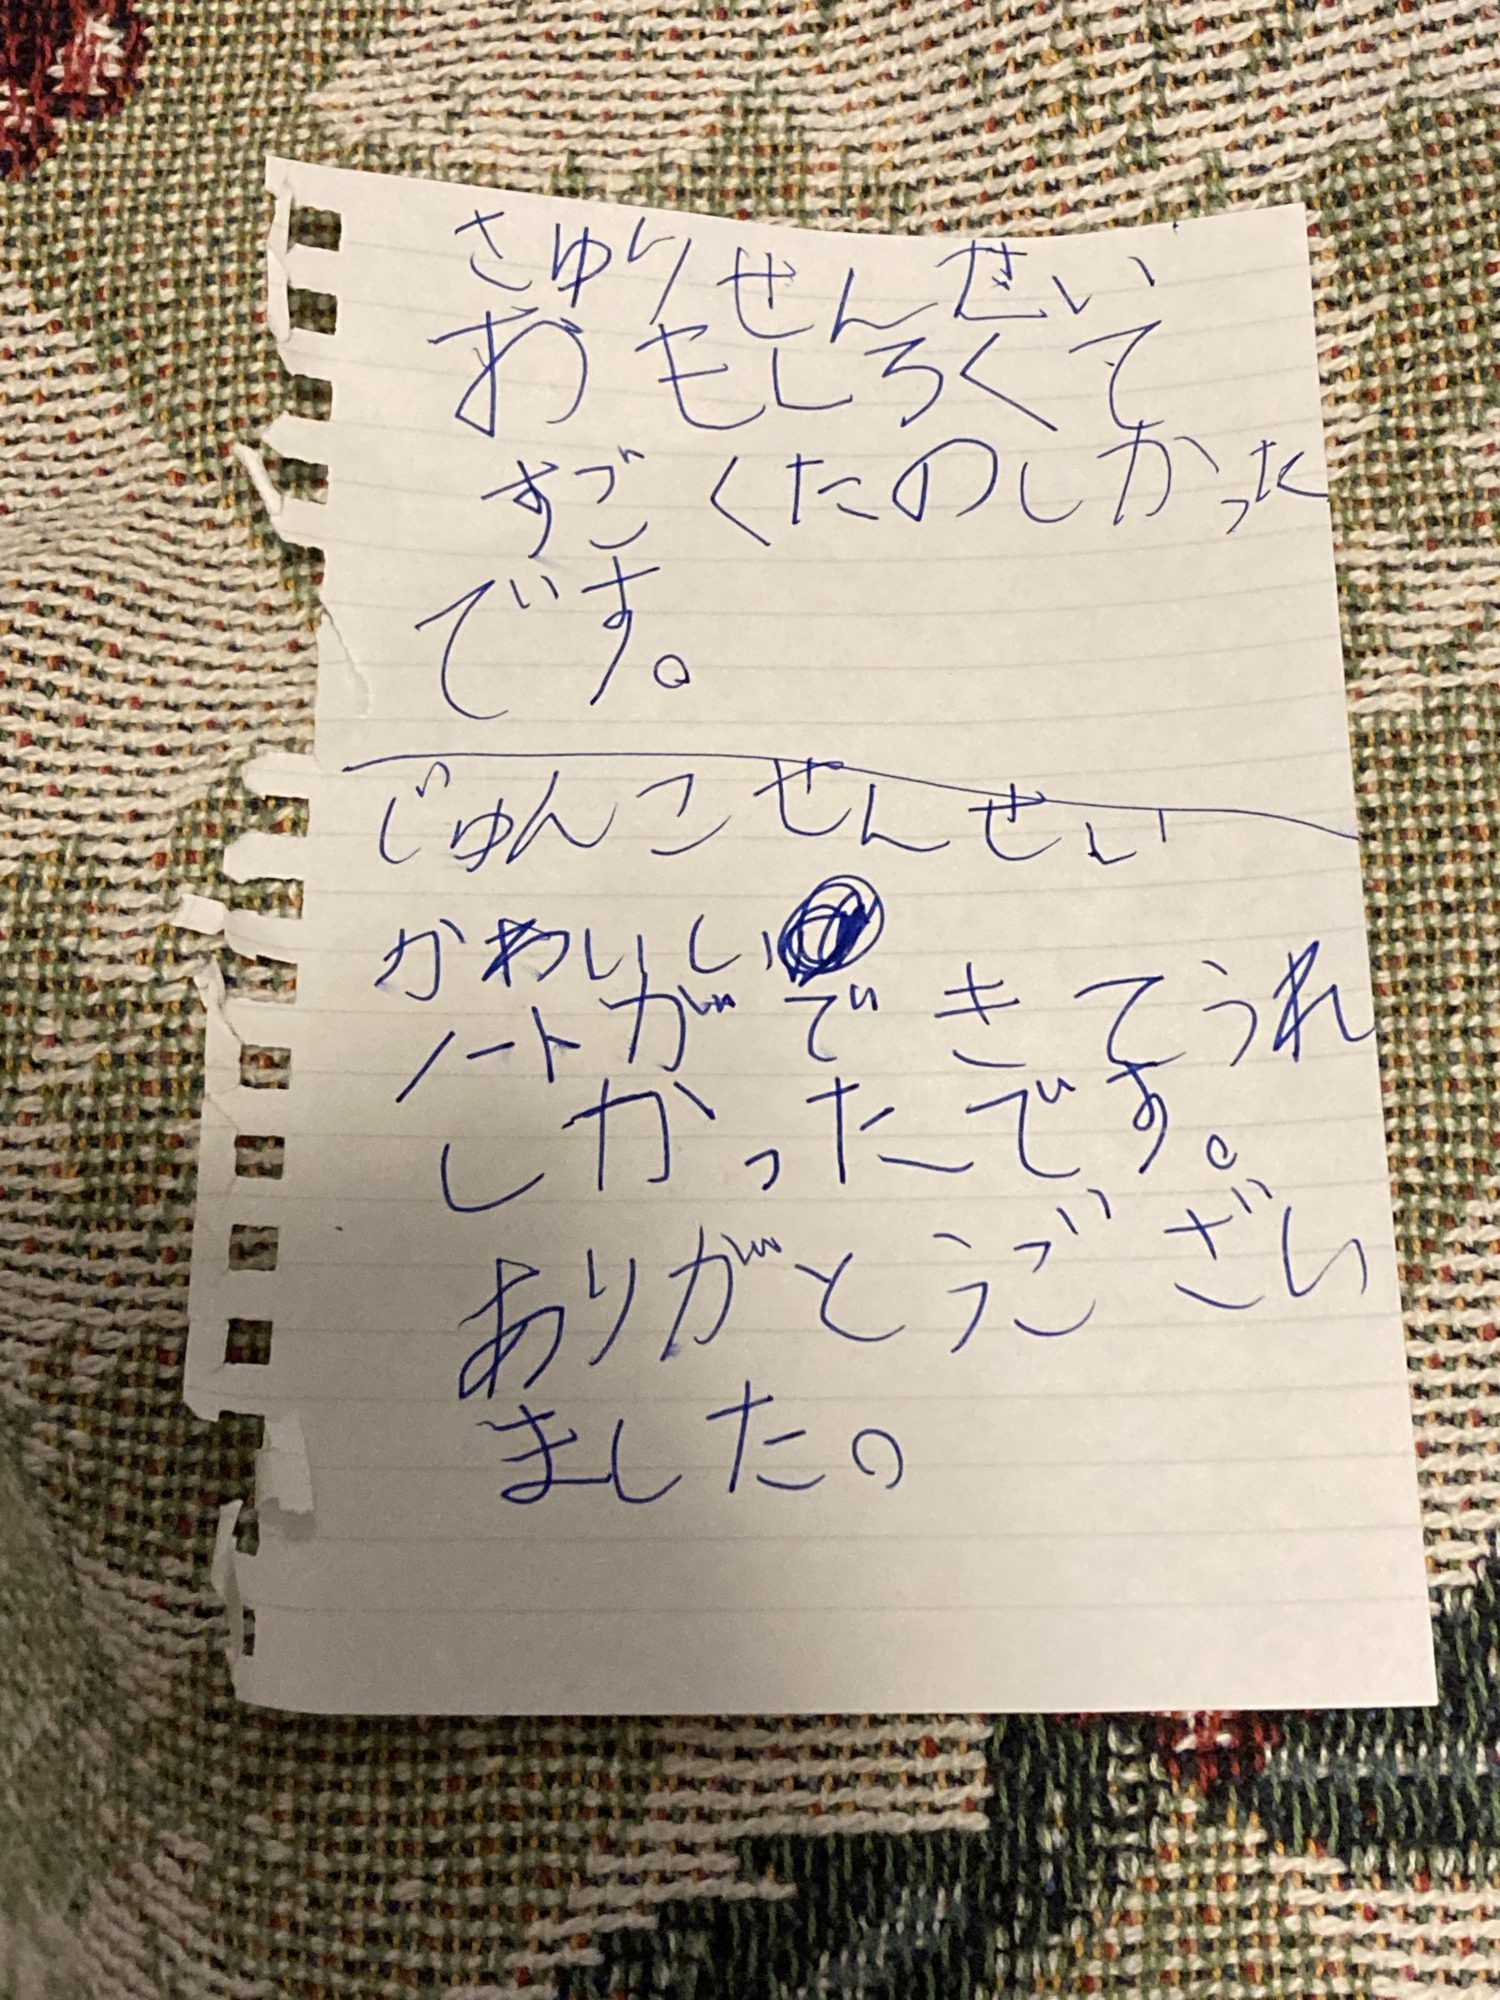 さゆりせんせい
おもしろくて
すごくたのしかった
です。
じゅんこせんせい
かわいしい
ノートができてうれ
しかったです。
ありがとうござい
ました。